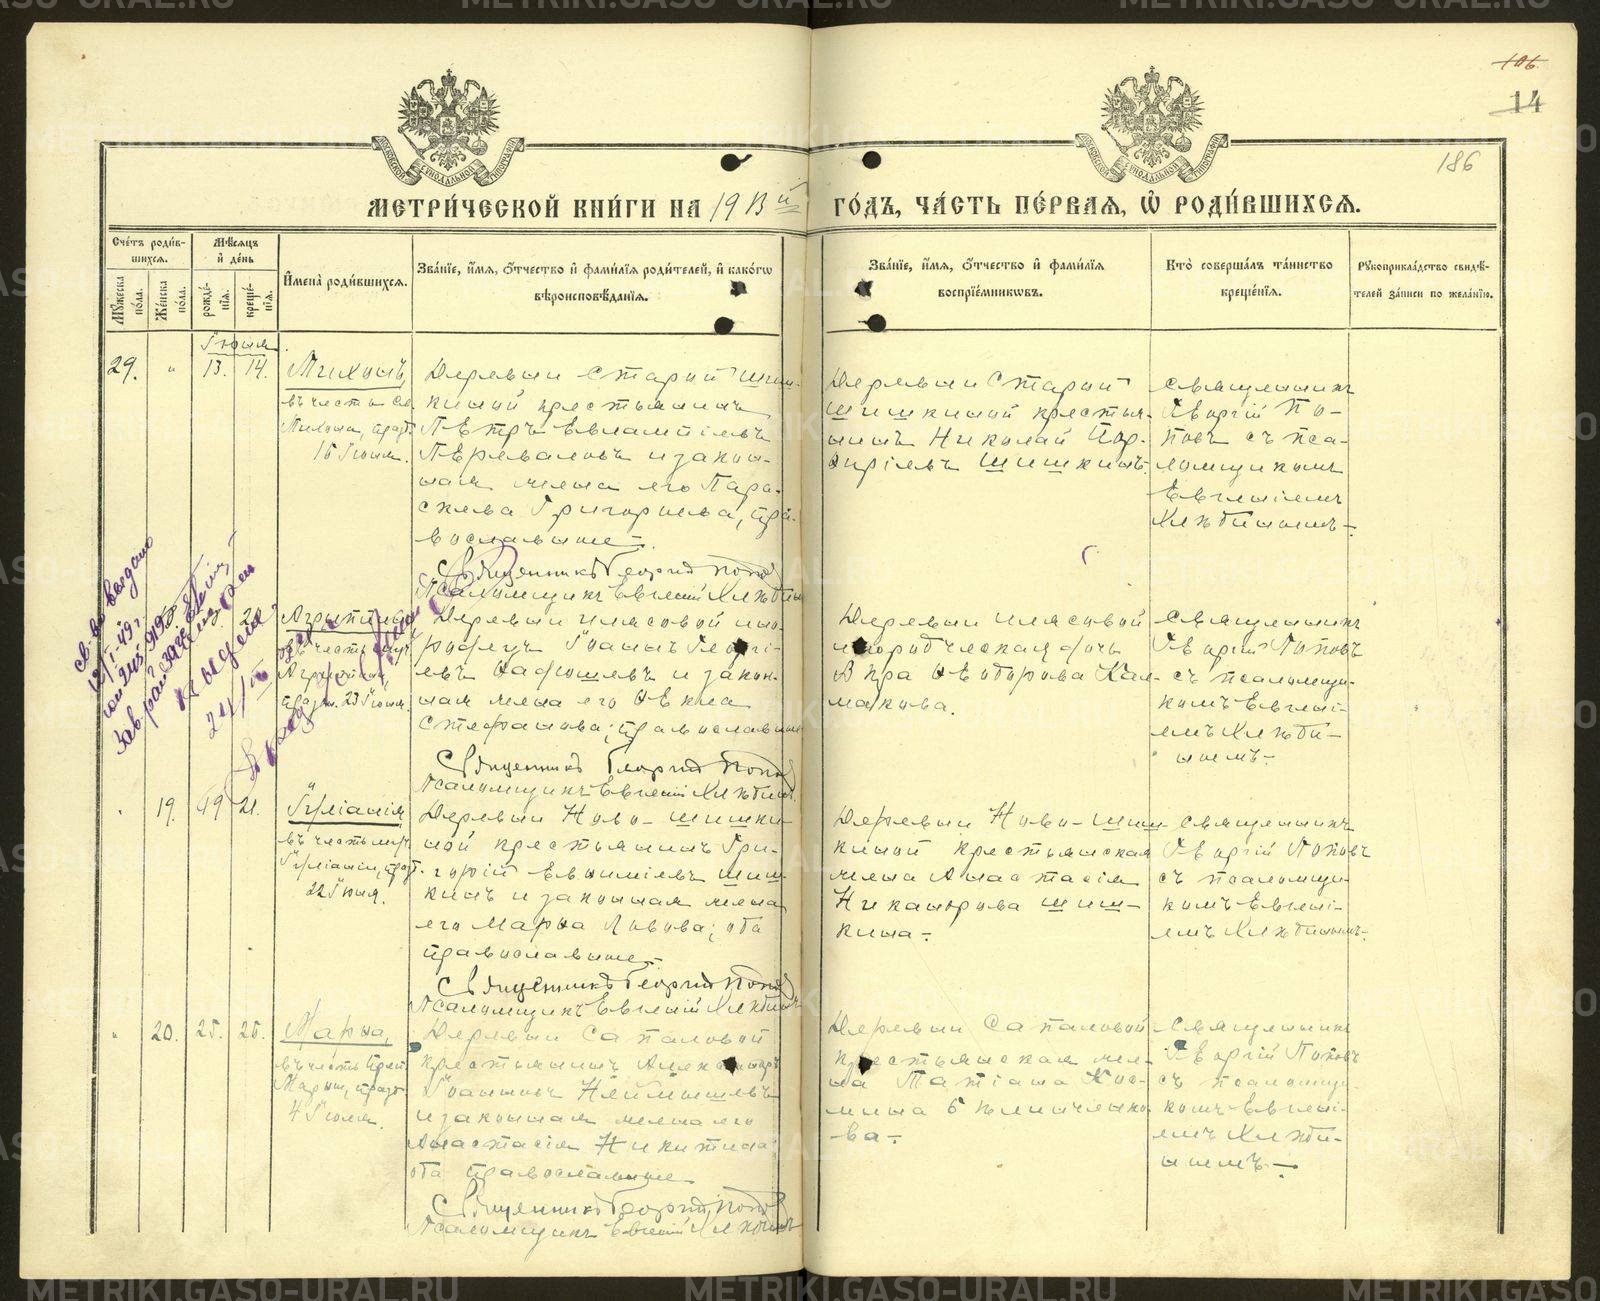 106
14
186
МЕТРИ́ЧЕСКОЙ КНИ́ГИ НА 1913й ГО́ДЪ, ЧА́СТЬ ПЕ́РВАЯ, Ѡ҆ РОДИ́ВШИХСЯ.
Сче́тъ роди́в-
шихся.
Мꙋ́жеска по́ла.
Же́нска по́ла.
Мѣ́сяцъ
и҆ де́нь
рожде́-
нїя.
креще́-
нїя.
И҆мена̀ роди́вшихся.
Зва́нїе, и҆́мя, ѻ҆́тчество и҆ фами́лїя роди́телей, и҆ како́гѡ
вѣроисповѣ́данїя.
Зва́нїе, и҆́мя, ѻ҆́тчество и҆ фами́лїя
воспрїе́мникѡвъ.
Кто̀ соверша́лъ та́инство
креще́нїя.
Рꙋкоприкла́дство свидѣ́-
телей за́писи по жела́нїю.
Іюня
29. " 13. 14.
Тихонъ,
въ честь св.
Тихона, празд.
16 Іюня.
Деревни Старой Шиш-
киной крестьянинъ
Петръ Евлампіевъ
Переваловъ и закон-
ная жена его Пара-
скева Григорьева, пра-
вославные.
Священникъ Георгій Поповъ
Псаломщикъ Евгеній Хлѣбинъ
Деревни Старой
Шишкиной крестья-
нинъ Николай Пор-
фиріевъ Шишкинъ.
Священникъ
Георгій По-
повъ съ пса-
ломщикомъ
Евгеніемъ
Хлѣбинымъ.
20.
Агрипина
въ честь муч.
Агрипины,
празд. 23 Іюня.
Деревни Илясовой ино-
родецъ Іоаннъ Георгі-
евъ и закон-
ная жена его Ѳекла
Стефанова; православные
Священникъ Георгій Поповъ
Псаломщикъ Евгеній Хлѣбинъ
Деревни Илясовой
инородческая дочь
Вѣра Ѳеодорова Кал-
макова.
Священникъ
Георгій Поповъ
съ псаломщи-
комъ Евгені-
емъ Хлѣби-
нымъ.
" 19. 19 21.
Іуліанія
въ честь муч.
Іуліаніи, празд.
22 Іюня.
Деревни Ново-Шишки-
ной крестьянинъ Гри-
горій Евѳиміевъ Шиш-
кинъ и законная жена
его Марѳа Львова; оба
православные.
Священникъ Георгій Поповъ
Псаломщикъ Евгеній Хлѣбинъ
Деревни Ново-Шиш-
киной крестьянская
жена Анастасія
Никанорова Шиш-
кина.
Священникъ
Георгій Поповъ
съ псаломщи-
комъ Евгені-
емъ Хлѣбинымъ.
" 20. 25. 26.
Марѳа,
въ честь преп.
Марѳы, празд.
4 Іюля.
Деревни Сапаловой
крестьянинъ Александръ
Іоанновъ Неймышевъ
и законная жена его
Анастасія Никитина;
оба православные
Священникъ Георгій Поповъ
Псаломщикъ Евгеній Хлѣбинъ
Деревни Сапаловой
крестьянская же-
на Татіана Кос-
мина
ва
Священникъ
Георгій Поповъ
съ псаломщи-
комъ Евгені-
емъ Хлѣби-
нымъ.
METRIKI.GASO-URAL.RU